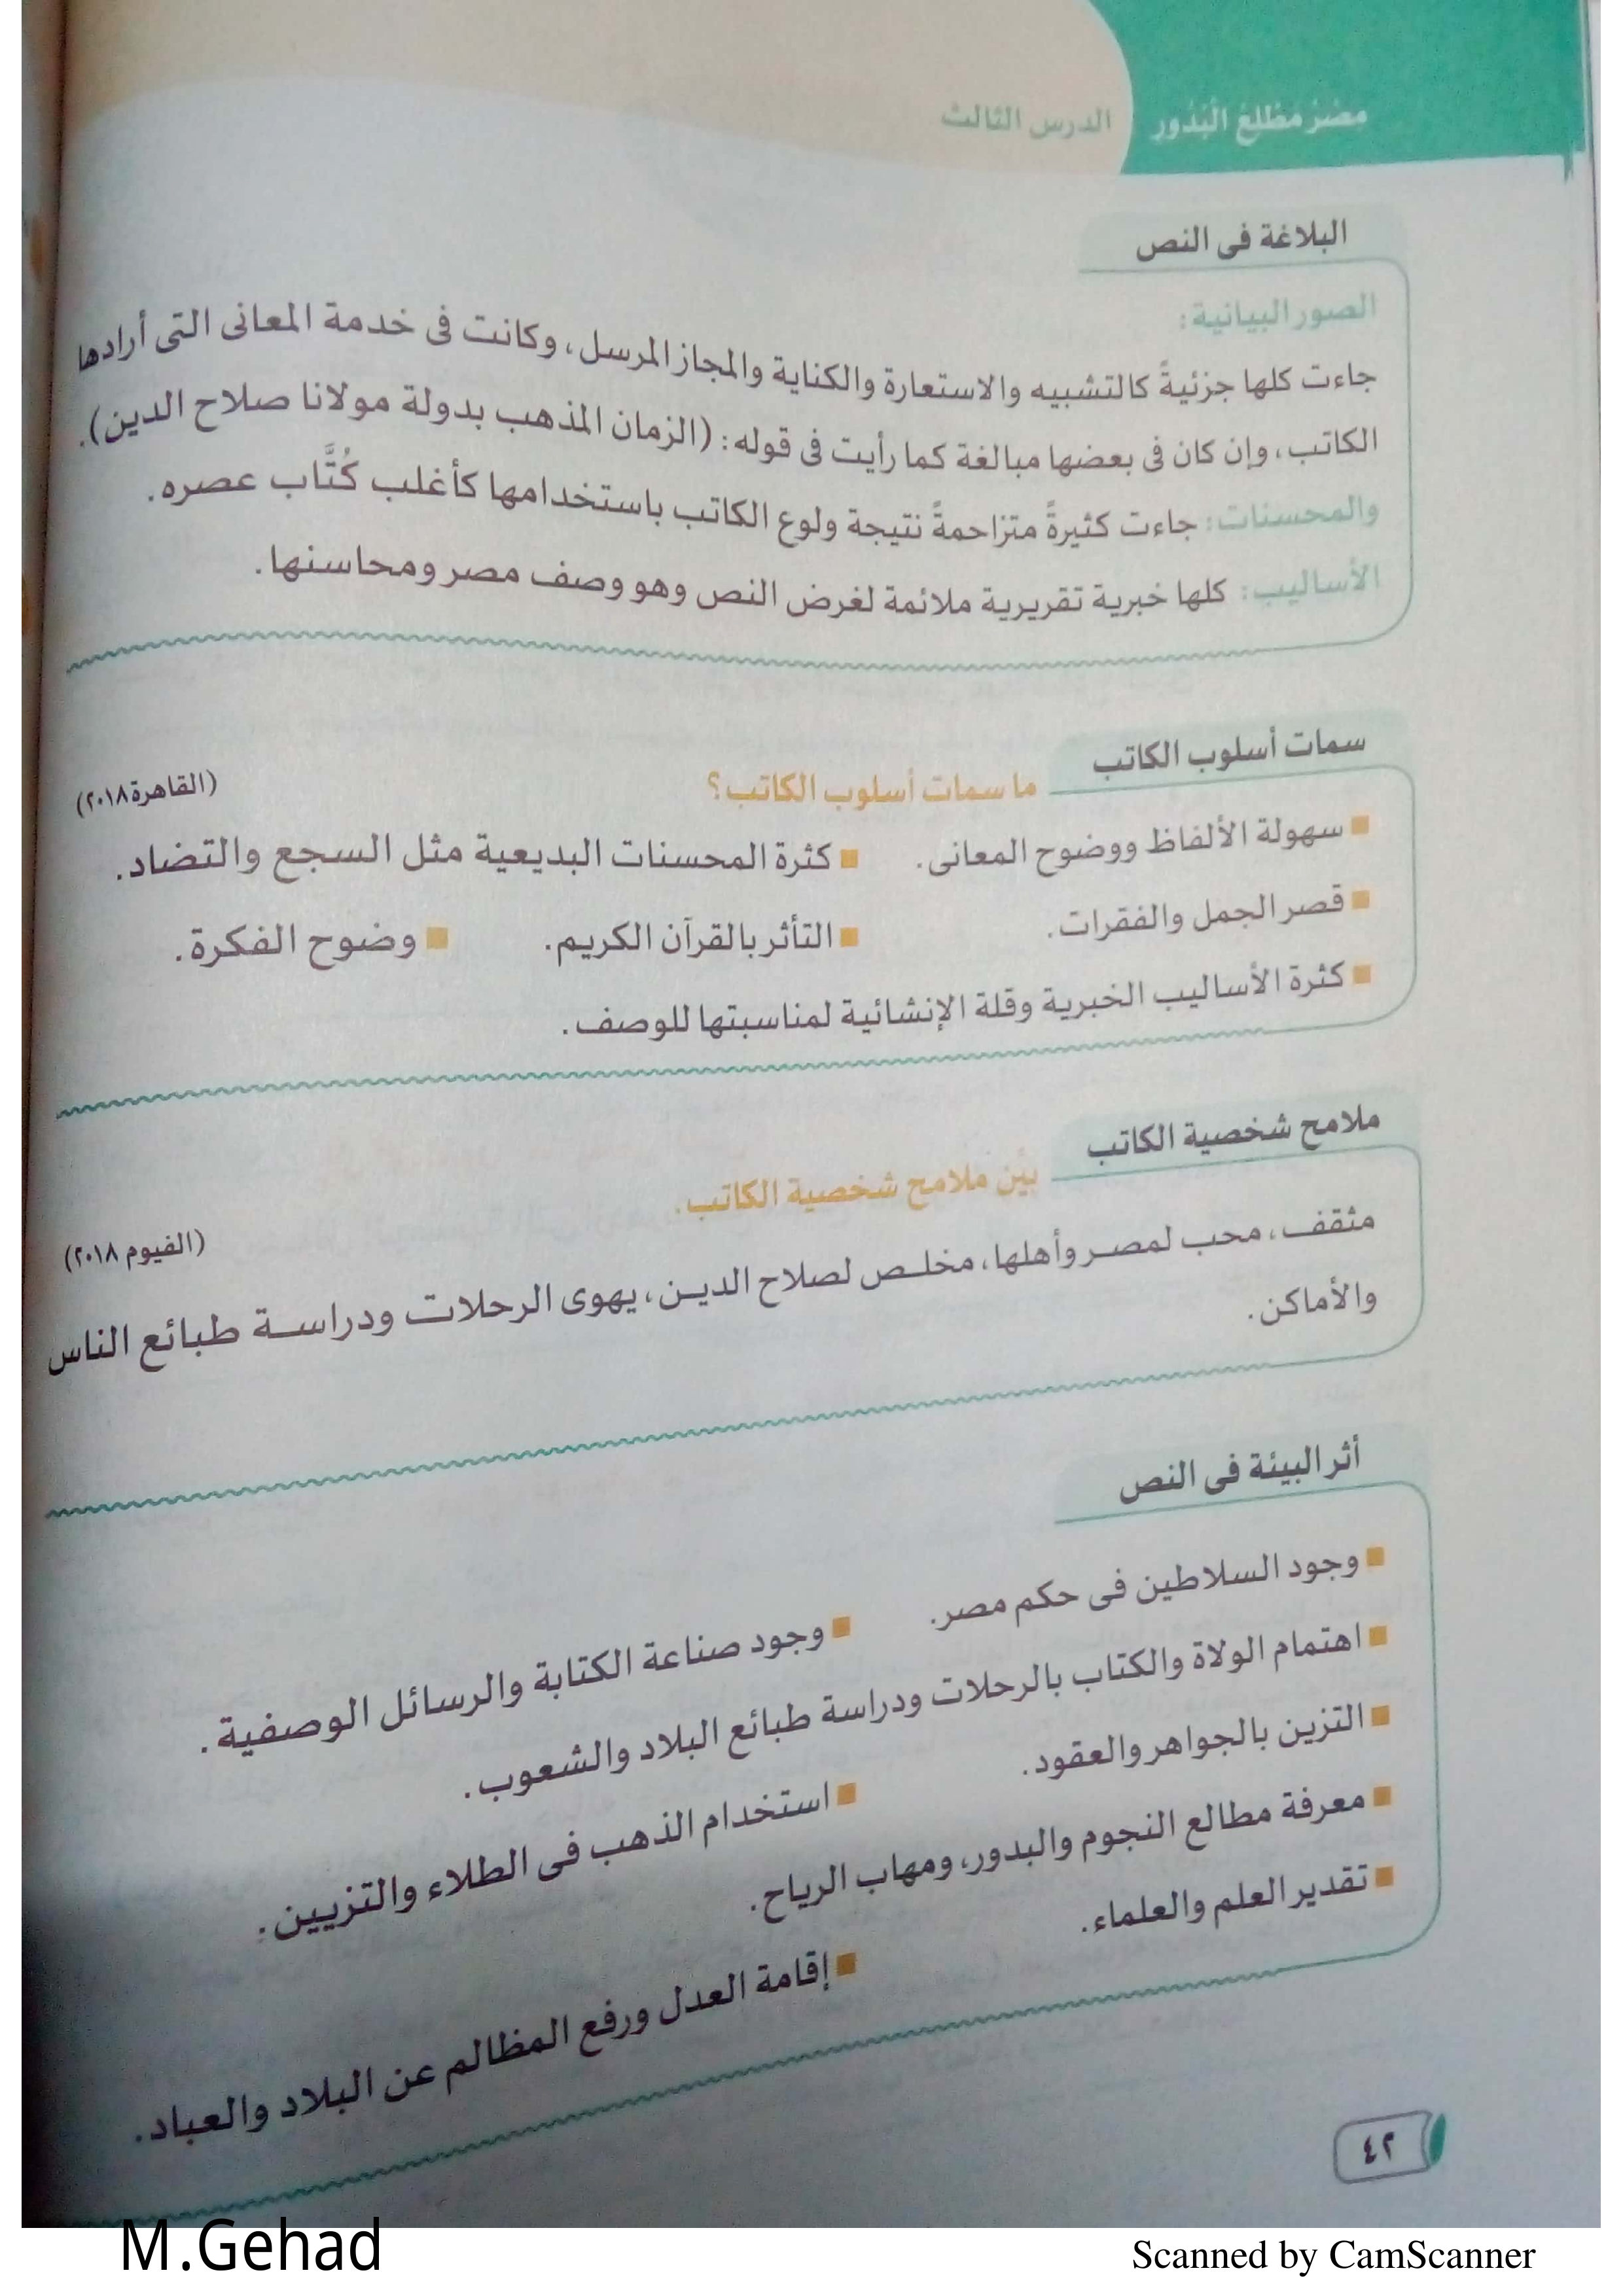 مصر مطلع البدور الدرس الثالث
البلاغة فى النص
الصور البيانية:
جاءت كلها جزئيةً كالتشبيه والاستعارة والكناية والمجاز المرسل، وكانت فى خدمة المعانى التى أرادها
الكاتب، وإن كان فى بعضها مبالغة كما رأيت فى قوله: (الزمان المذهب بدولة مولانا صلاح الدين).
والمحسنات: جاءت كثيرةً متزاحمةً نتيجة ولوع الكاتب باستخدامها كأغلب كُتَّاب عصره.
الأساليب: كلها خبرية تقريرية ملائمة لغرض النص وهو وصف مصر ومحاسنها.
سمات أسلوب الكاتب
ما سمات أسلوب الكاتب؟ (القاهرة ٢٠١٨)
■ سهولة الألفاظ ووضوح المعانى. ■ كثرة المحسنات البديعية مثل السجع والتضاد.
■ قصر الجمل والفقرات. ■ التأثر بالقرآن الكريم. ■ وضوح الفكرة.
■ كثرة الأساليب الخبرية وقلة الإنشائية لمناسبتها للوصف.
ملامح شخصية الكاتب
بيِّن ملامح شخصية الكاتب. (الفيوم ٢٠١٨)
مثقف، محب لمصر وأهلها، مخلص لصلاح الدين، يهوى الرحلات ودراسة طبائع الناس
والأماكن.
أثر البيئة فى النص
■ وجود السلاطين فى حكم مصر. ■ وجود صناعة الكتابة والرسائل الوصفية.
■ اهتمام الولاة والكتاب بالرحلات ودراسة طبائع البلاد والشعوب.
■ التزين بالجواهر والعقود. ■ استخدام الذهب فى الطلاء والتزيين.
■ معرفة مطالع النجوم والبدور، ومهاب الرياح.
■ تقدير العلم والعلماء. ■ إقامة العدل ورفع المظالم عن البلاد والعباد.
٤٢
M.Gehad
Scanned by CamScanner